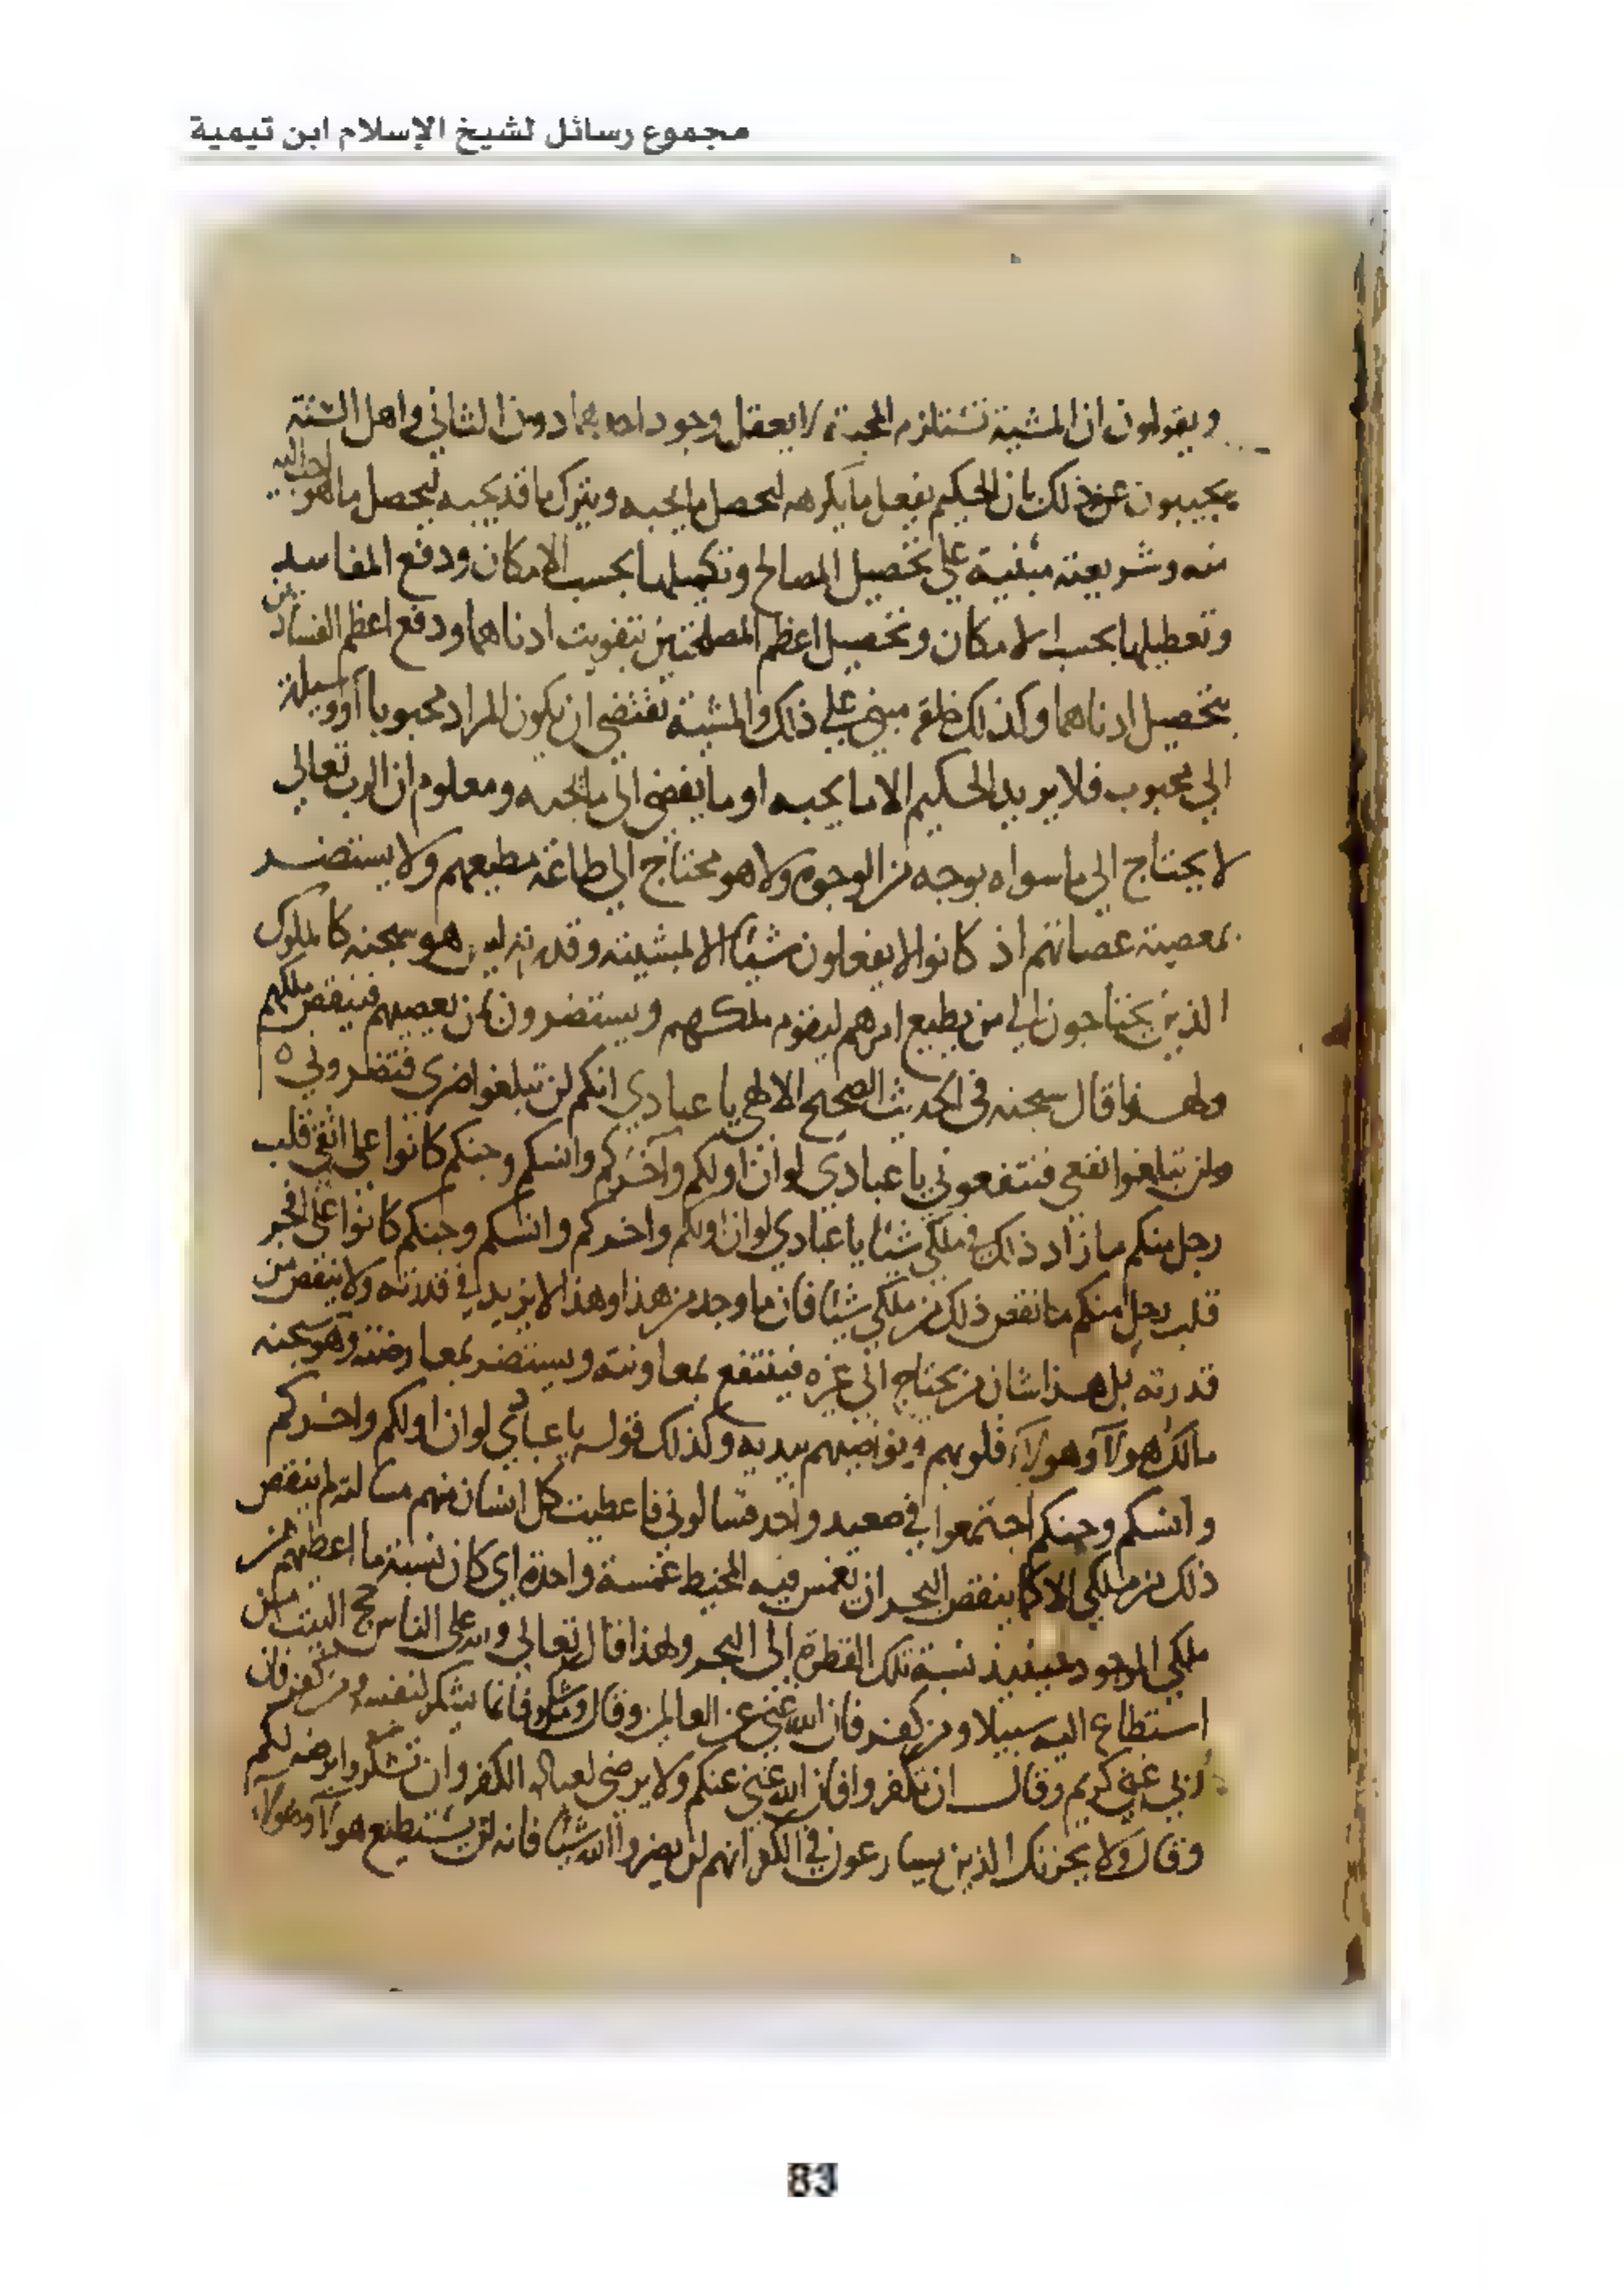 مجموع رسائل لشيخ الإسلام ابن تيمية
ويقولون ان المشية تستلزم المحبة لا يعقل وجود احدهما دون الثاني واهل السنة
يجيبون عن ذلك بان الحكيم يفعل ما يكرهه ليحصل ما يحبه ويترك ما قد يحبه ليحصل ما هو احب اليه
منه وشريعته مبنية على تحصيل المصالح وتكميلها بحسب الامكان ودفع المفاسد
وتعطيلها بحسب الامكان وتحصيل اعظم المصلحتين بتفويت ادناهما ودفع اعظم الفسادين
بتحصيل ادناهما وكذلك خلقه مبني على ذلك والمشية تقتضي ان يكون المراد محبوبا او وسيلة
الي محبوب فلا يريد الحكيم الا ما يحبه او ما يفضي الى ما يحبه ومعلوم ان الرب تعالى
لا يحتاج الي ما سواه بوجه من الوجوه ولا هو محتاج الي طاعة مطيعهم ولا يستضر
بمعصية عصاتهم اذ كانوا لا يفعلون شيئا الا بمشيته وقدرته ليس هو سبحنه كالملوك
الذين يحتاجون الي من يطيع امرهم ليقوم ملكهم ويستضرون بمن يعصيهم فينقص ملكهم
ولهذا قال سبحنه في الحديث الصحيح الالهي يا عبادي انكم لن تبلغوا ضري فتضروني ه
ولن تبلغوا نفعي فتنفعوني يا عبادي لو ان اولكم وآخركم وانسكم وجنكم كانوا على اتقى قلب
رجل منكم ما زاد ذلك في ملكي شيئا يا عبادي لو ان اولكم واخركم وانسكم وجنكم كانوا على افجر
قلب رجل منكم ما نقص ذلك من ملكي شيئا فان ما وجد من هذا وهذا لا يزيد في قدرته ولا ينقص من
قدرته بل هذا شان من يحتاج الى غيره فينتفع بمعاونته ويستضر بمعارضته وهو سبحنه
مالك هولآ وهولآء قلوبهم ونواصيهم بيديه وكذلك قوله يا عبادي لو ان اولكم واخركم
وانسكم وجنكم اجتمعوا في صعيد واحد فسالوني فاعطيت كل انسان منهم مسالته لم ينقص
ذلك من ملكي الا كما ينقص البحر ان يغمس فيه المخيط غمسة واحدة اي كان نسبة ما اعطيهم من
ملكي الموجود حينيذ نسبة تلك القطرة الى البحر ولهذا قال تعالى ولله على الناس حج البيت من
استطاع اليه سبيلا ومن كفر فان الله غني عن العالمين وقال ومن شكر فانما يشكر لنفسه ومن كفر فان
ربي غني كريم وقال ان تكفروا فان الله غني عنكم ولا يرضى لعباده الكفر وان تشكروا يرضه لكم
وقال ولا يحزنك الذين يسارعون في الكفر انهم لن يضروا الله شيئا فانه لن يستطيع هولآ وهولآء
83